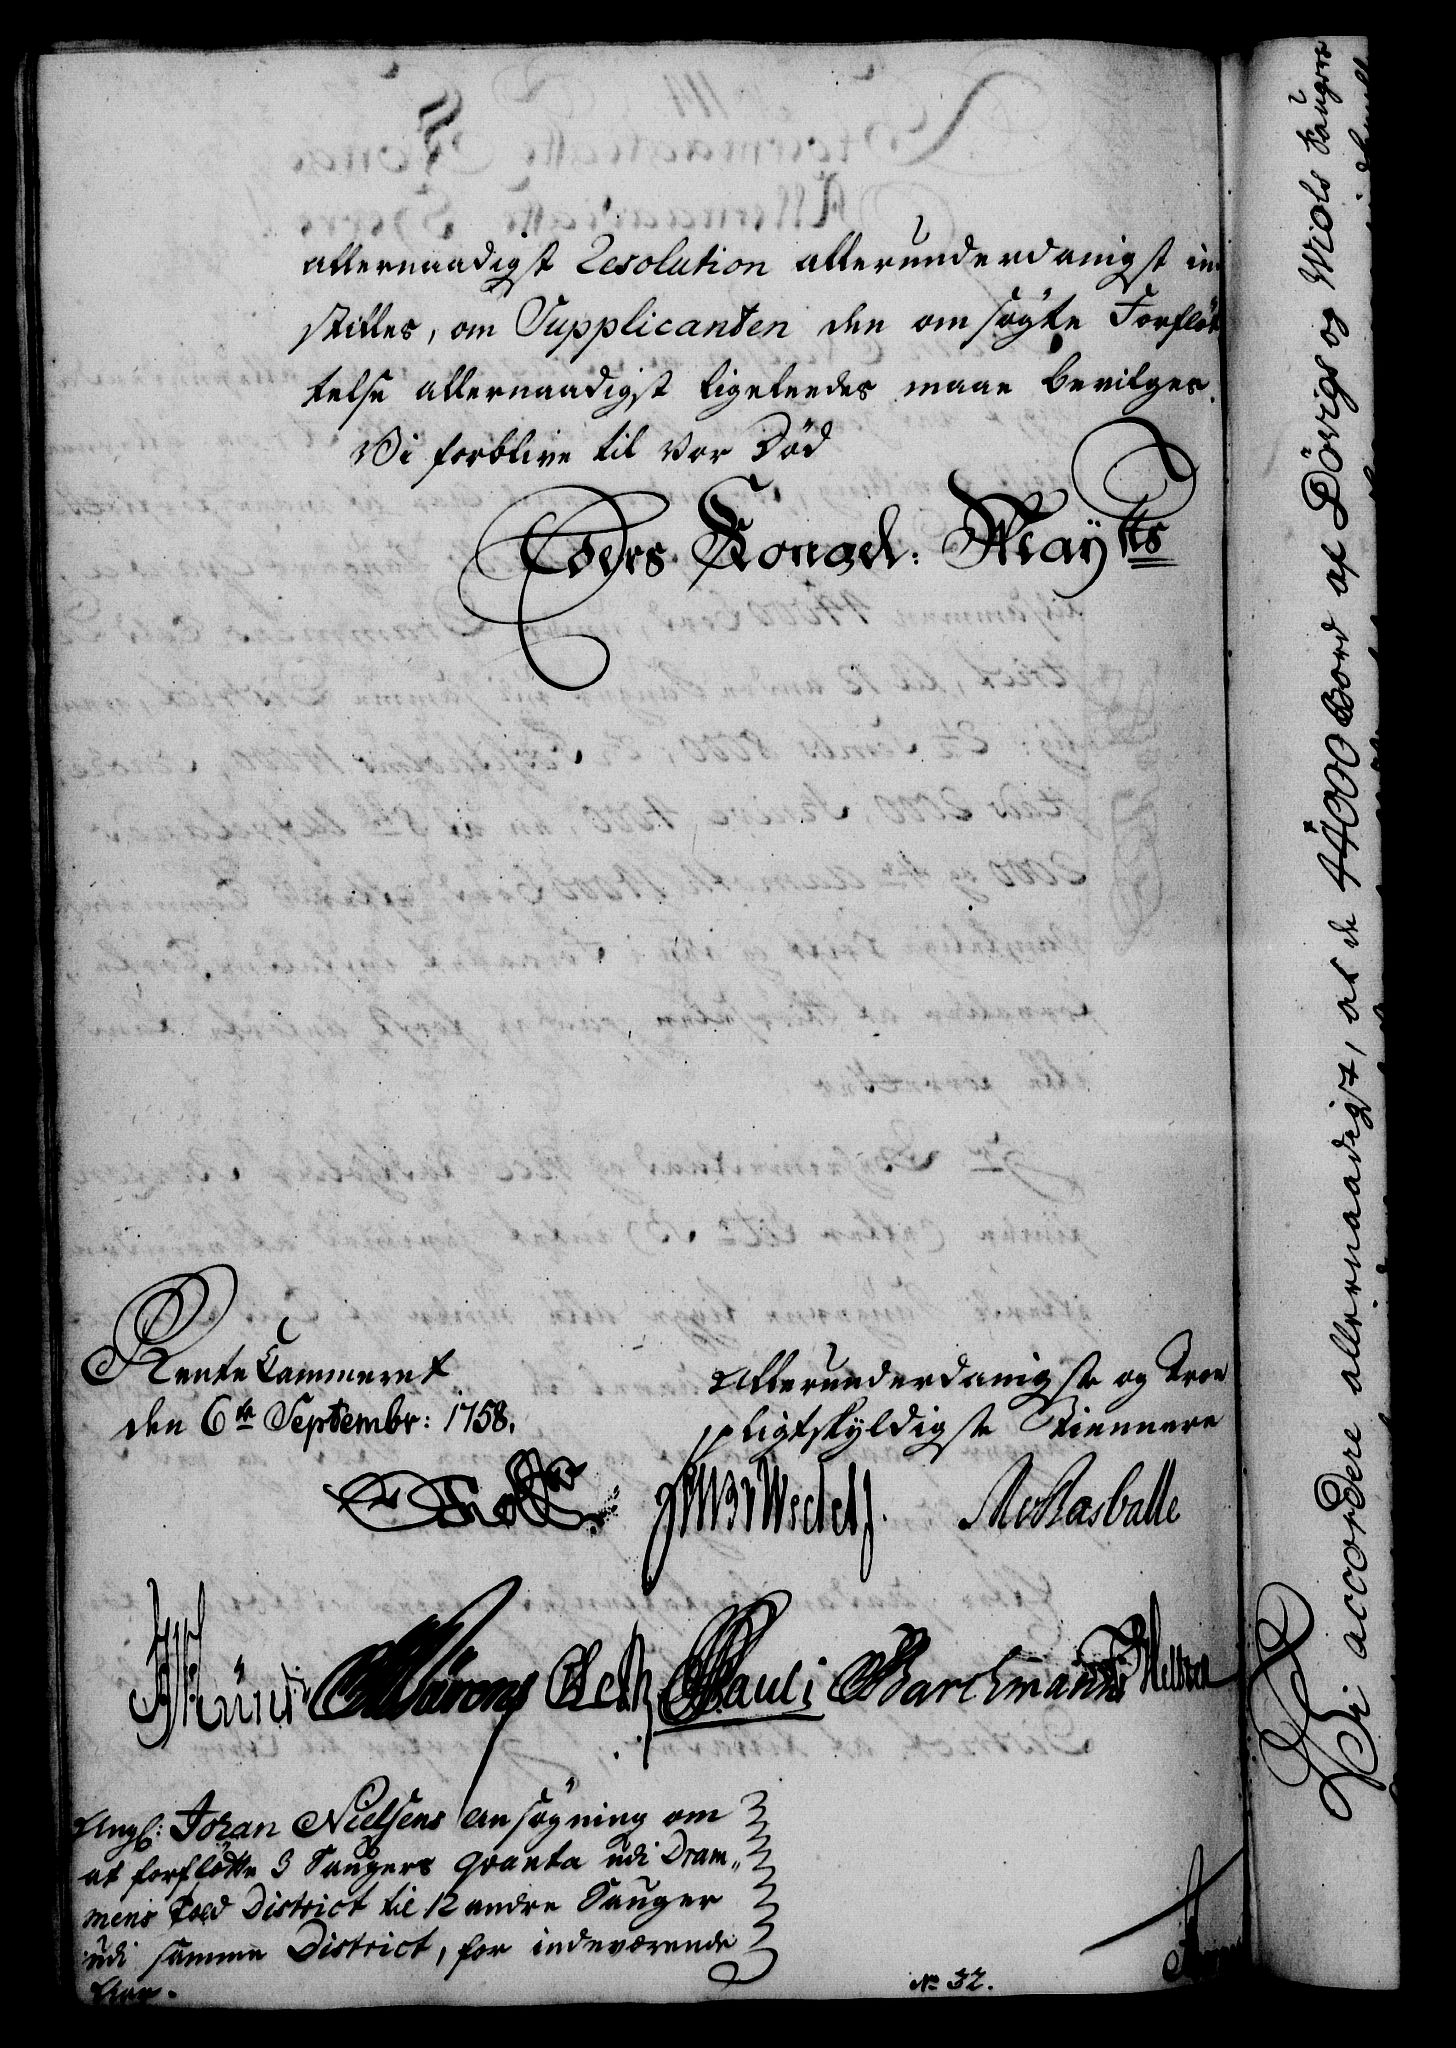 allernaadigst Resolution allerunderdanigst in
stilles, om Supplicanten den omsögte Forflöt
telse allernaadigst ligeleedes maae bevilges.
Vi forblive til vor Död
Eders Kongel: Mayts
RenteCammeret
den 6te Septembr: 1758.
Allerunderdanigste og troe
pligtskyldigste Tiennere
Wedel
Pauli Barchmann
Ang: Joran Nielsens Ansögning om
at forflötte 3 Saugers Qvanta udi Dram„
mens Told District til 12 andre Sauger
udi samme District, for indeværende
Aar.
No 32.
Vi accordere allernaadigst, at de 44000 Bord af Dövigs og Miöls Saugers